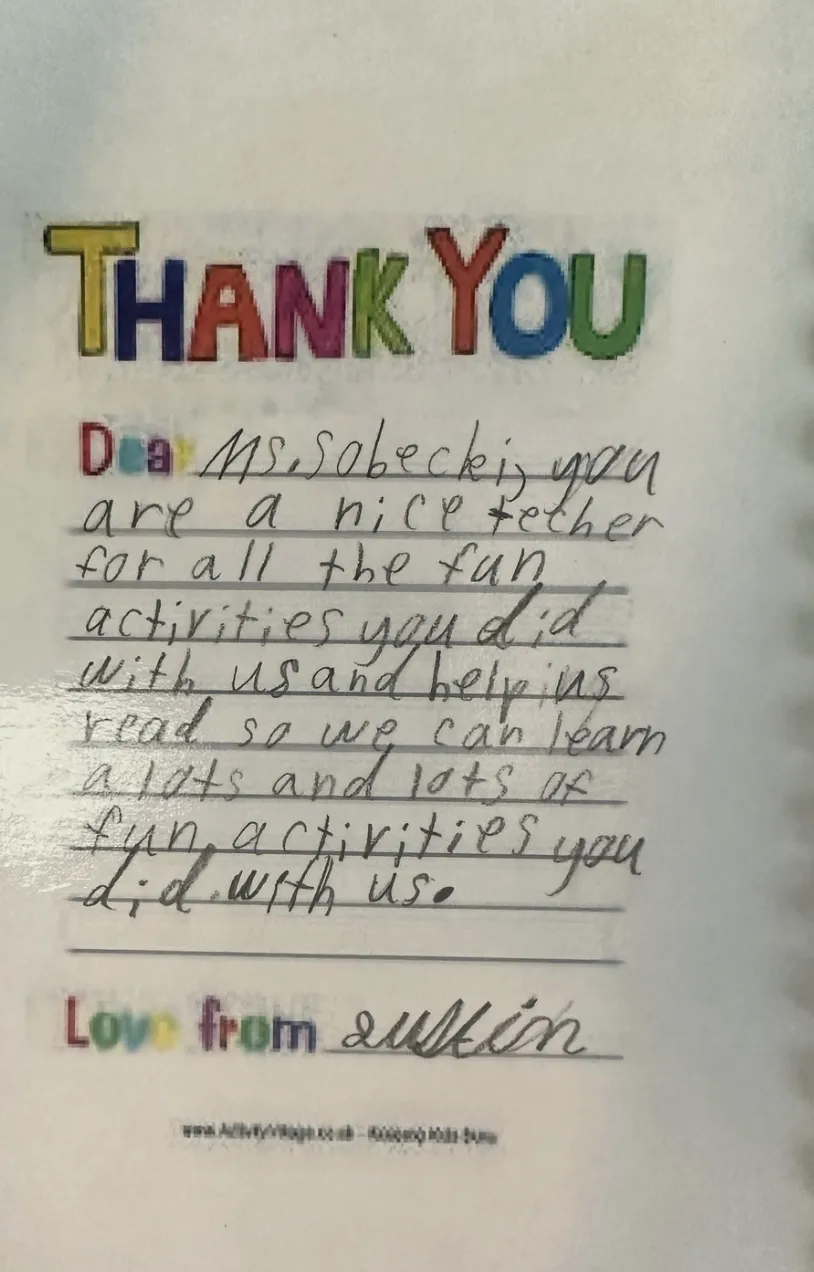 THANK YOU
Dear Ms. Sobecki, you
are a nice tether
for all the fun
activities you did
with us and help us
read so we can learn
a lots and lots of
fun activities you
did with us.
Love from austin
www.ActivityVillage.co.uk - Keeping Kids Busy